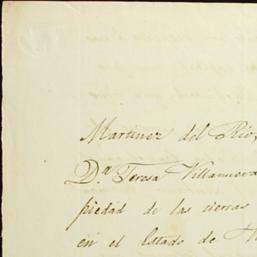 Martinez del Rio,
D.ª Teresa Villanueva
piedad de las tierras
en el Estado de